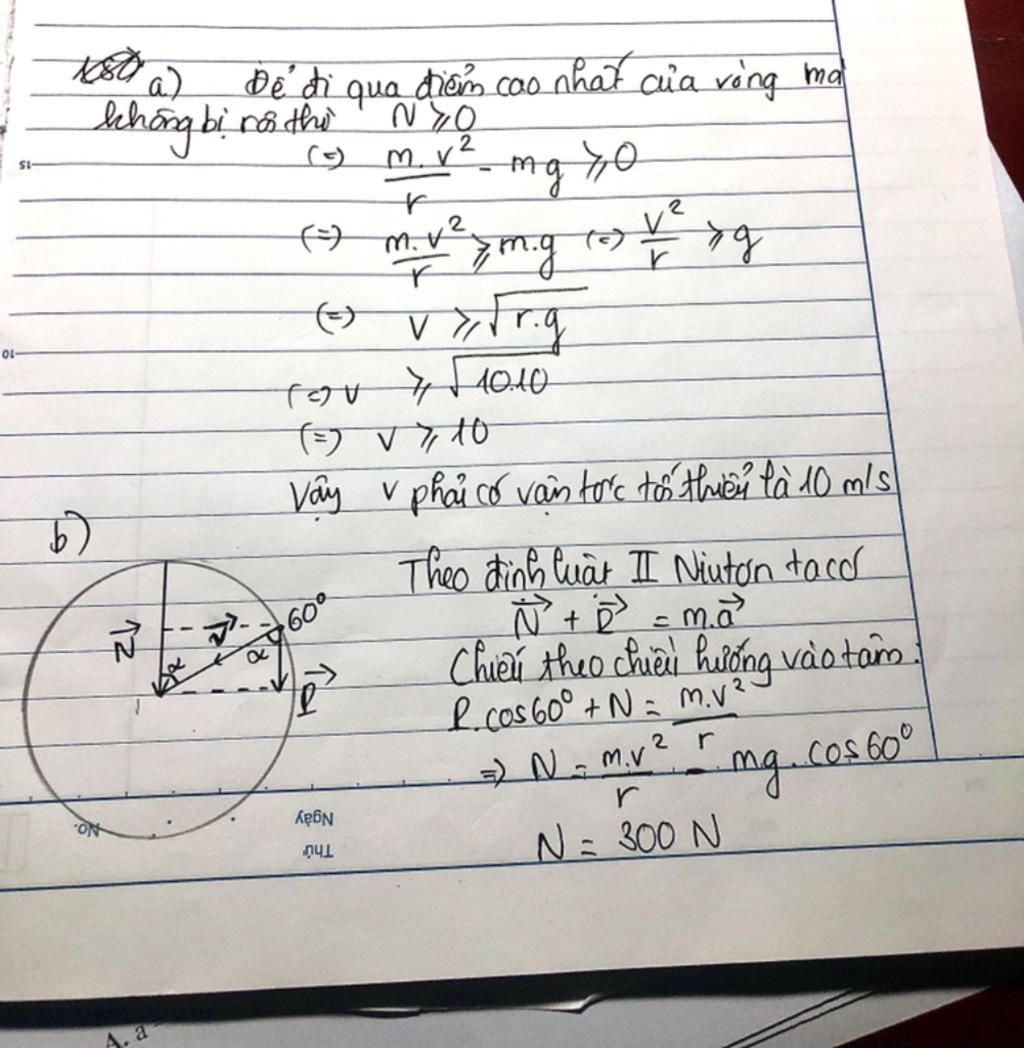 a) Để đi qua điểm cao nhất của vòng mà
không bị rơi thì N ⩾ 0
(=) m.v²/r - mg ⩾ 0
(=) m.v²/r ⩾ m.g (=) v²/r ⩾ g
(=) v ⩾ √r.g
(=) v ⩾ √10.10
(=) v ⩾ 10
Vậy v phải có vận tốc tối thiểu là 10 m/s
b)
Theo định luật II Niutơn ta có
N⃗ + P⃗ = m.a⃗
Chiếu theo chiều hướng vào tâm:
P.cos60° + N = m.v²/r
=) N = m.v²/r - mg.cos60°
N = 300 N
60°
N⃗
α α
P⃗
15
10
No.
Ngày
Thứ
A. a